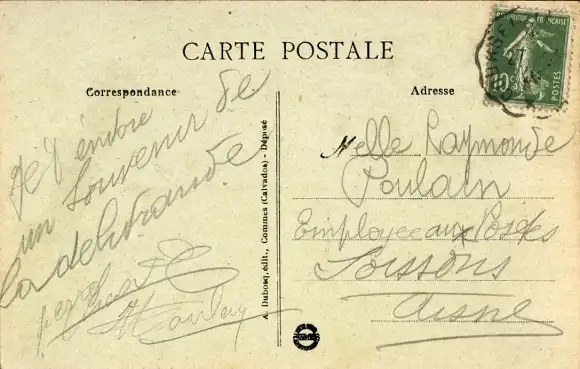 CARTE POSTALE
RÉPUBLIQUE FRANÇAISE
10c
POSTES
Correspondance
un Souvenir de
la délivrande
A. Dubosq, édit., Commes (Calvados) - Déposé
Adresse
Melle Raymonde
Poulain
Employee aux Postes
Soissons
Aisne